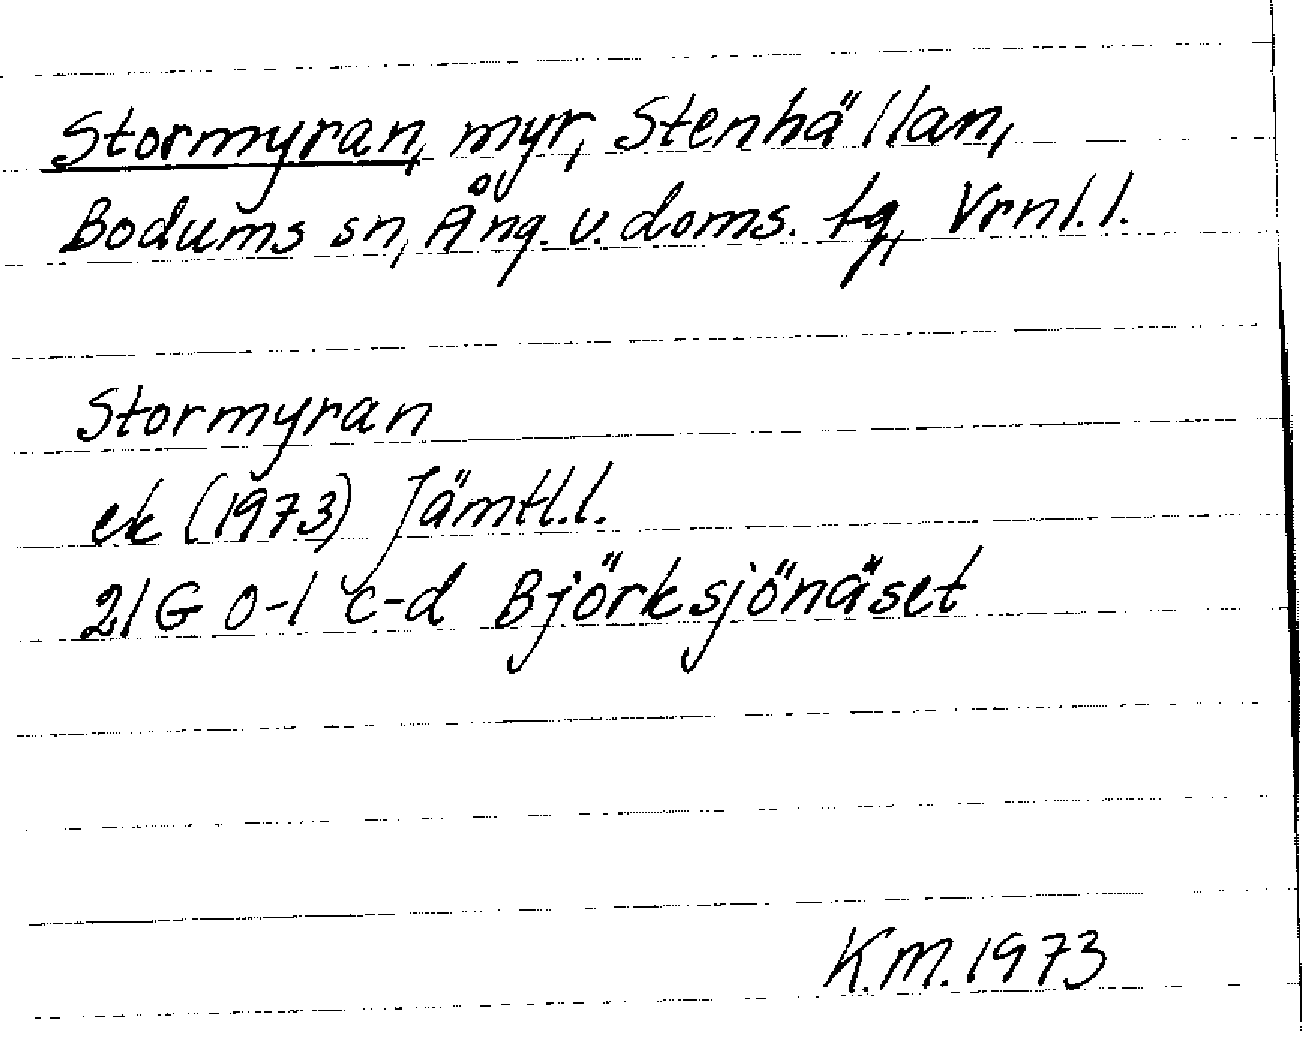 Stormyran, myr, Stenhällan,
Bodums sn, Ång. v. doms. tg, Vrnl.l.
Stormyran
ek (1973) Jämtl.l.
21G 0-1 c-d Björksjönäset
K.M. 1973